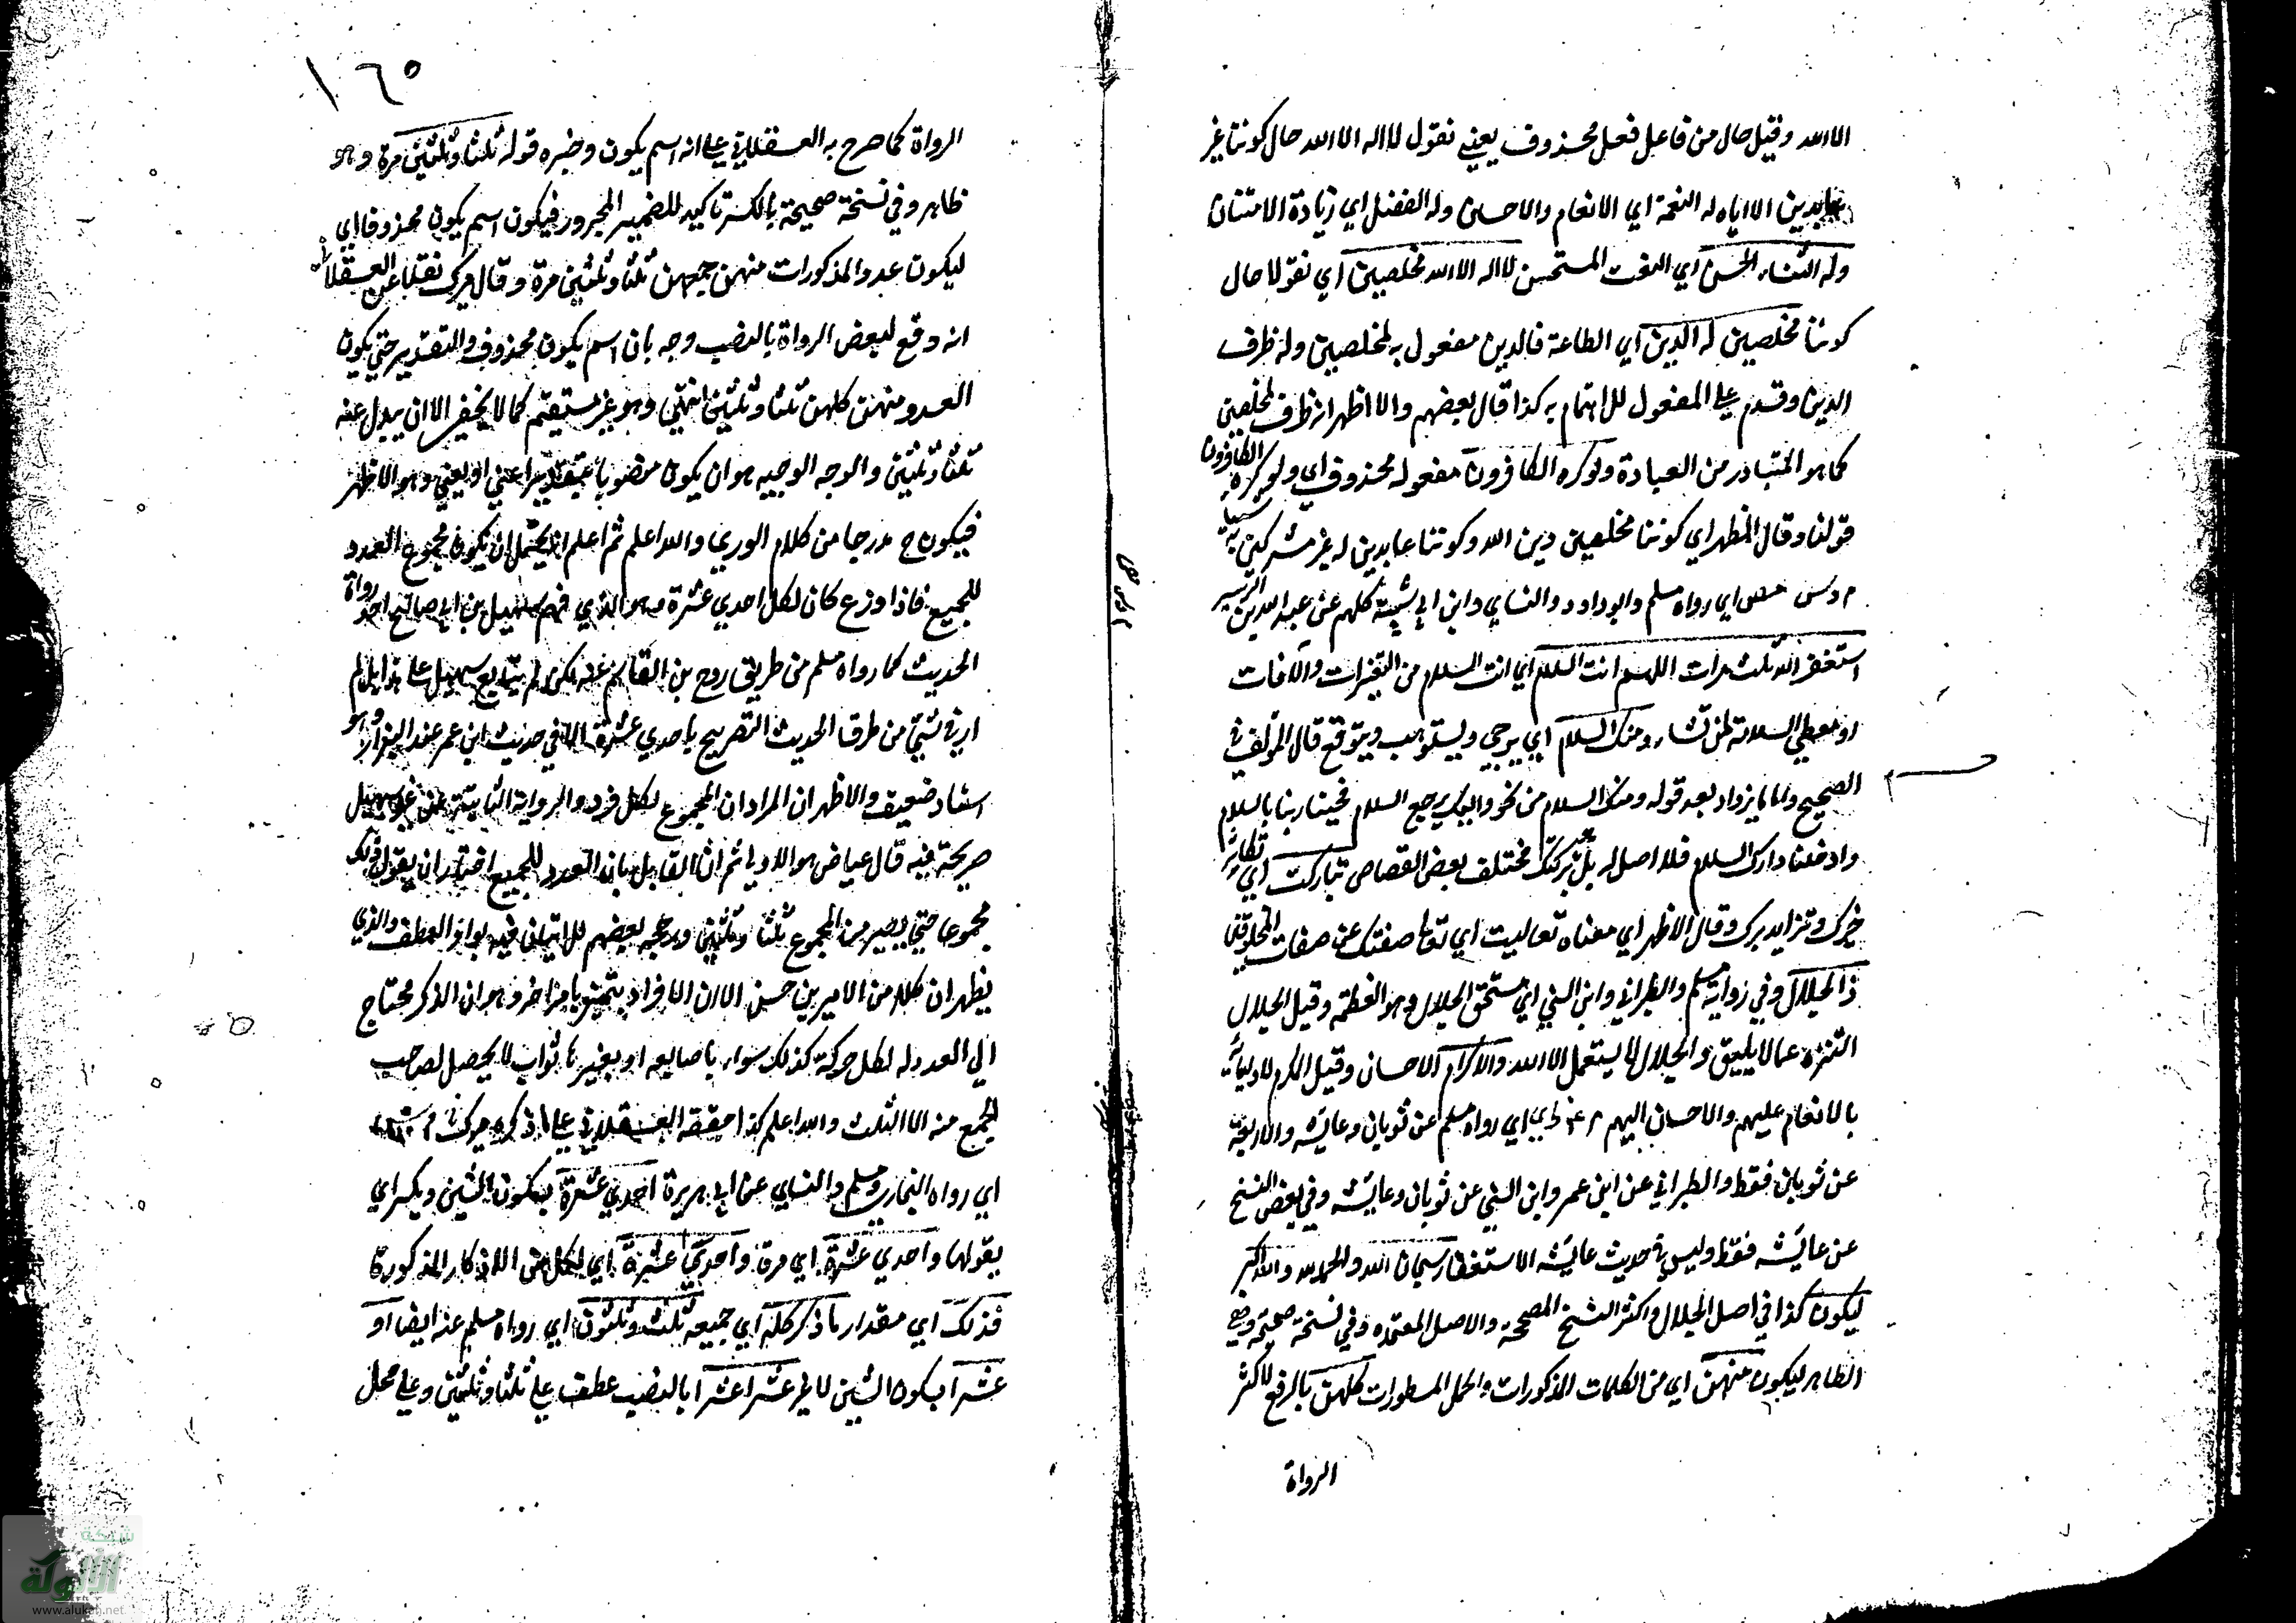 الا الله وقيل حال من فاعل فعل محذوف يعني نقول لا اله الا الله حال كوننا غير
عابدين الا اياه له النعمة اي الانعام والاحسان وله الفضل اي زيادة الامتنان
وله الثناء الحسن اي النعت المستحسن لا اله الا الله مخلصين اي نقولا حال
كوننا مخلصين له الدين اي الطاعة فالدين مفعول به لمخلصين وله ظرف
الدين وقدم علي المفعول للاهتمام به كذا قال بعضهم والا اظهر انه ظرف لمخلصين
كما هو المتبادر من العبادة ولو كره الكافرون مفعوله محذوف اي ولو كره الكافرون
قولنا وقال المظهر اي كوننا مخلصين دين الله وكوننا عابدين له غير مشركين به شيئا
م د س مص اي رواه مسلم وابو داود والنساي وابن ابي شيبة كلهم عن عبد الله بن الزبير
استغفر الله ثلث مرات اللهم انت السلام اي انت السلام من التغيرات والآفات
او معطي السلامة لمن تشاء ومنك السلام اي يرجي ويستوهب ويتوقع قال المؤلف في
الصحيح واما ما يزاد بعد قوله ومنك السلام من نحو واليك يرجع السلام فحينا ربنا بالسلام
وادخلنا دارك السلام فلا اصل له بل مختلف بعض القصاص تباركت اي تكاثر
خيرك وتزايد برك وقال الاظهر اي معناه تعاليت اي تعا صفتك عن صفات المخلوقين
ذا الجلال وفي رواية مسلم والطبراني وابن السني اي مستحق الجلال وهو العظمة وقيل الجلال
التنزه عما لا يليق والجلال لا يستعمل الا الله والاكرام الاحسان وقيل المكرم لاوليائه
بالانعام عليهم والاحسان اليهم م عه ي اي رواه مسلم عن ثوبان وعايشه والاربعة
عن ثوبان فقط والطبراني عن ابن عمر وابن السني عن ثوبان وعايشه وفي بعض النسخ
عن عايشه فقط وليس في حديث عايشه الاستغفار سبحان الله والحمد لله والله اكبر
ليكون كذا في اصل الجلال واكثر النسخ المصححة والاصل المعتمده وفي نسخة صحيحة وهي
الظاهر ليكون منهن اي من الكلمات المذكورات والجمل المسطورات كلهن بالرفع لاكثر
الرواة
١٦٥
الرواة كما صرح به العسقلاني علي انه اسم يكون وخبره قوله ثلثا وثلثين مرة وهو
ظاهر وفي نسخة صحيحة بالكسر تاكيد للضمير المجرور فيكون اسم يكون محذوفا اي
ليكون عدد المذكورات منهن جميعهن ثلثا وثلثين مرة وقال ميرك نقلا عن العسقلاني
انه وقع لبعض الرواة بالنصب وجه بان اسم يكون محذوف والتقدير حتي يكون
العدد منهن كلهن ثلثا وثلثين انتهي وهو غير مستقيم كما لا يخفي الا ان يبدل عنه
ثلثا وثلثين والوجه الوجيه هو ان يكون منصوبا بتقدير اعني او يعني وهو الاظهر
فيكون ح مدرجا من كلام الوري والله اعلم ثم اعلم انه يحتمل ان يكون مجموع العدد
للجميع فاذا وزع كان لكل احدي عشرة وهو الذي فهمه سهيل بن ابي صالح احد رواة
الحديث كما رواه مسلم من طريق روح بن القاسم عنه لكن لم يتابع سهيل علي هذا بل لم
ار في شيء من طرق الحديث التصريح باحدي عشرة الا في حديث ابن عمر عند البزار وهو
اسناد ضعيف والاظهر ان المراد ان المجموع لكل فرد والرواية الثابتة عن غير سهيل
صريحة فيه قال عياض هو الاولي ثم ان القايل بان العدد للجميع اختار ان يقول ذلك
مجموعا حتي يصير من المجموع ثلثا وثلثين ورجحه بعضهم للاتيان فيه بواو العطف والذي
يظهر ان كلا من الامرين حسن الا ان الافراد يتميز بامر اخر وهو ان الذكر محتاج
الي العدد له لكل حركة كذلك سواء باصابعه او بغيرها ثواب لا يحصل لصاحب
الجمع منه الا الثلث والله اعلم كذا حققه العسقلاني علي ما ذكره ميرك خ م س
اي رواه البخاري ومسلم والنساي عن ابي هريرة احدي عشرة بسكون الشين ويكسر اي
يقولها واحدي عشرة اي مرة واحدي عشرة اي لكل من الاذكار المذكورة
فذلك اي مقدار ما ذكر كله اي جميعه ثلث وثلثون اي رواه مسلم عنه ايضا او
عشرا بسكون الشين لا غير عشرا عشرا بالنصب عطف علي ثلثا وثلثين وعلي محل
شبكة
الألوكة
www.alukah.net